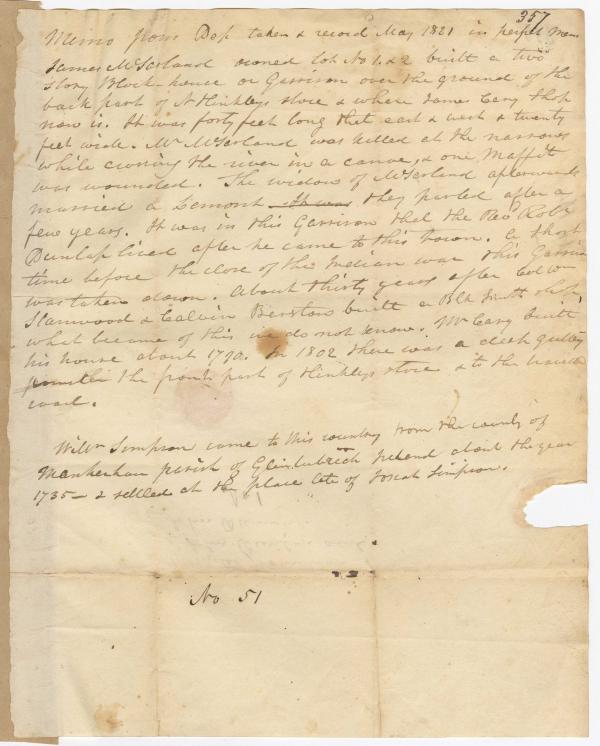 357
Memo from Dep taken & record May 1821 in perpetl mem
James McFarland owned lot No 1. & 2 built a two
story Block-house or Garrison over the ground of the
back part of N Hinkleys store & where James Cary shop
now is. It was forty feet long that east & west & twenty
feet wide. Mr McFarland was killed at the narrows
while crossing the river in a canoe, & one Maffit
was wounded. The widow of McFarland afterwards
married a Lemont It was they parted after a
few years. It was in this Garrison that the Rev Robt
Dunlap lived after he came to this town. A short
time before the close of the Indian war this Garrison
was taken down. About thirty years after Col Wm
Stanwood & Calvin Barstow built a Blk Smith shop,
what became of this we do not know. Mr Cary built
his house about 1790. In 1802 there was a deep gulley
the front part of Hinkleys store & to the
road.
Willm Simpson came to this country from the county of
parish of Ireland about the year
1735 — & settled at the place late of Josiah Simpson.
No 51